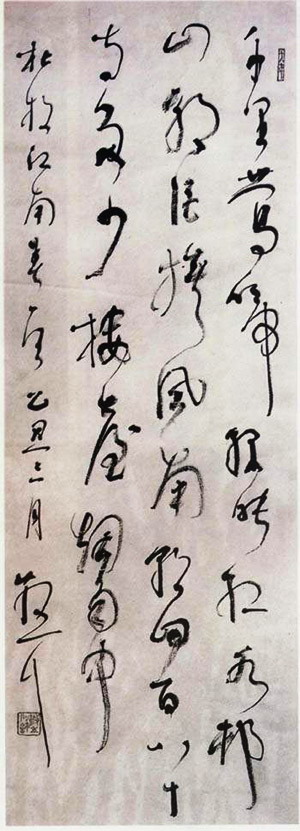 千里鶯啼綠映紅水邨
山郭酒旗風南朝四百八十
寺多少樓臺烟雨中
杜牧江南春一首乙丑三月